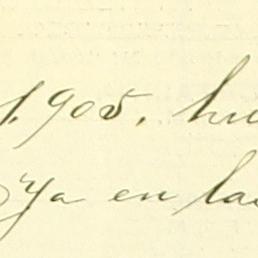 1.905, hu
ya en la